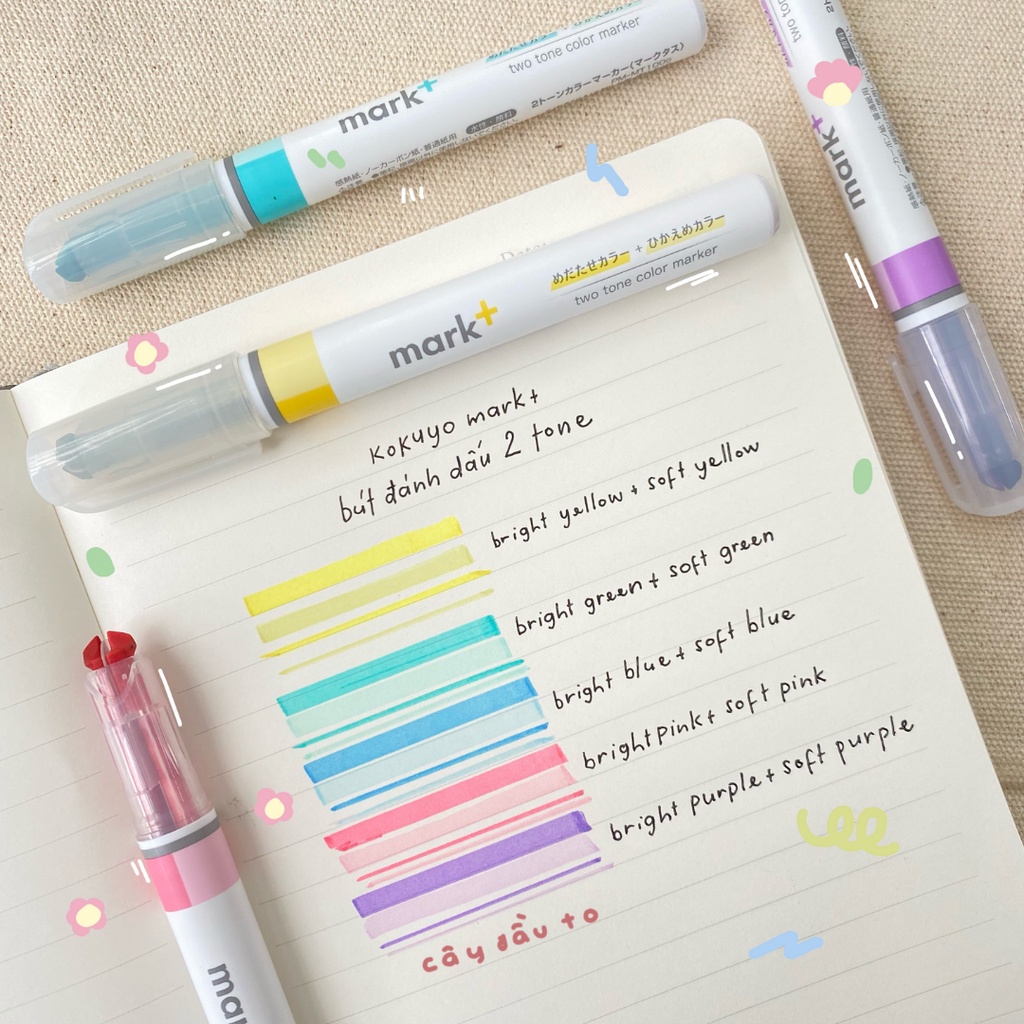 two tone color marker
mark+
2トーンカラーマーカー(マークタス)
水性・顔料
感熱紙・ノーカーボン紙・普通紙用
two tone
mark+
めだたせカラー + ひかえめカラー
two tone color marker
mark+
KOKUYO mark+
bút đánh dấu 2 tone
bright yellow + soft yellow
bright green + soft green
bright blue + soft blue
bright pink + soft pink
bright purple + soft purple
cây đầu to
mar